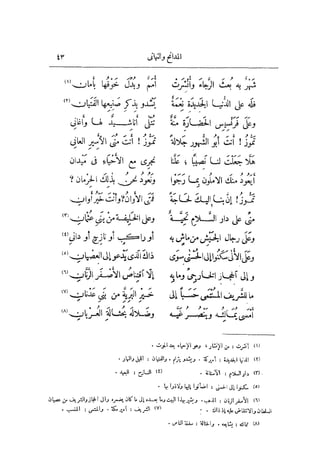 المدائح والتهاني ٤٣
شهرٌ به بُعث الرجاءُ وأُنشرت أممٌ وبُدل خوفها بأمان (١)
فله على الدنيا الجديدة نعمةٌ يشدو بذكر صنيعها الفتيان (٢)
وعلى فراديس الحضارة منةٌ تتلى أناشيد لها وأغاني
تموز! أنت أبو الشهور جلالة تموز! أنت منى الأسير العاني
هلا جعلت لنا نصيباً؛ علنا نجري مع الأحياء في ميدان
أيعود منك الآملون بما رجوا ونعود نحن بذلك الحرمان؟
تموز! إن بنا إليك لحاجةً فمتى الأوان؟ وأنت خير أوان
مني على دار السلام تحيةٌ وعلى الخليفة من بني عثمان (٣)
وعلى رجال الجيش من ماشٍ به أو راكب أو نازح أو داني (٤)
وعلى الألى سكنوا إلى الحسنى سوى ذاك الذي يدعو إلى العصيان (٥)
والى الحجاز الخارجي وما به إلا اقتناص الأصفر الرنان (٦)
ما للشريف المنتمى حسباً إلى خير البرية من بني عدنان (٧)
أمسى يمالئه وينصر غيه وضلاله بحثالة العربان (٨)
(١) أنشرت: من الإنشار؛ وهو الإحياء بعد الموت.
(٢) الدنيا الجديدة: أمريكة. ويشدو يترنم. والفتيان: الليل والنهار.
(٣) دار السلام: الأستانة. (٤) النازح: البعيد.
(٥) سكنوا إلى الحسنى: اطمأنوا إليها ولاذوا بها.
(٦) الأصفر الرنان: الذهب. ويشير بهذا البيت وما بعده إلى ما كان يضمره والي الحجاز والشريف من عصيان
السلطان والانتقاض عليه إذ ذاك. (٧) الشريف: أمير مكة. والمنتمى: المنتسب.
(٨) يمالئه: يشايعه. والحثالة: سفلة الناس.